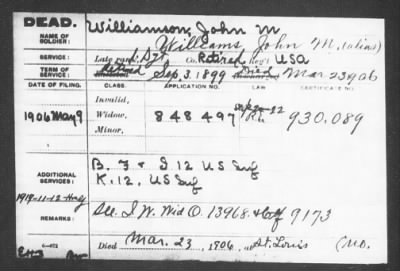 DEAD.
Williamson, John M
NAME OF SOLDIER:
Williams John M. (alias)
SERVICE:
Late rank, 1 Sgt Co. Retired Reg't USA
TERM OF SERVICE:
Retired Sep. 3. 1899 Died Mar. 23 1906
DATE OF FILING. CLASS. APPLICATION NO. LAW CERTIFICATE NO.
Invalid,
1906 May 9 Widow, 848497 930.089
Minor,
ADDITIONAL SERVICES:
B. F & S 12 US Inf
K. 12. US Inf
1918-11-12
REMARKS:
See I. W. Wid O. 13968. & Ctf 9173
Died Mar. 23, 1906, at St. Louis Mo.